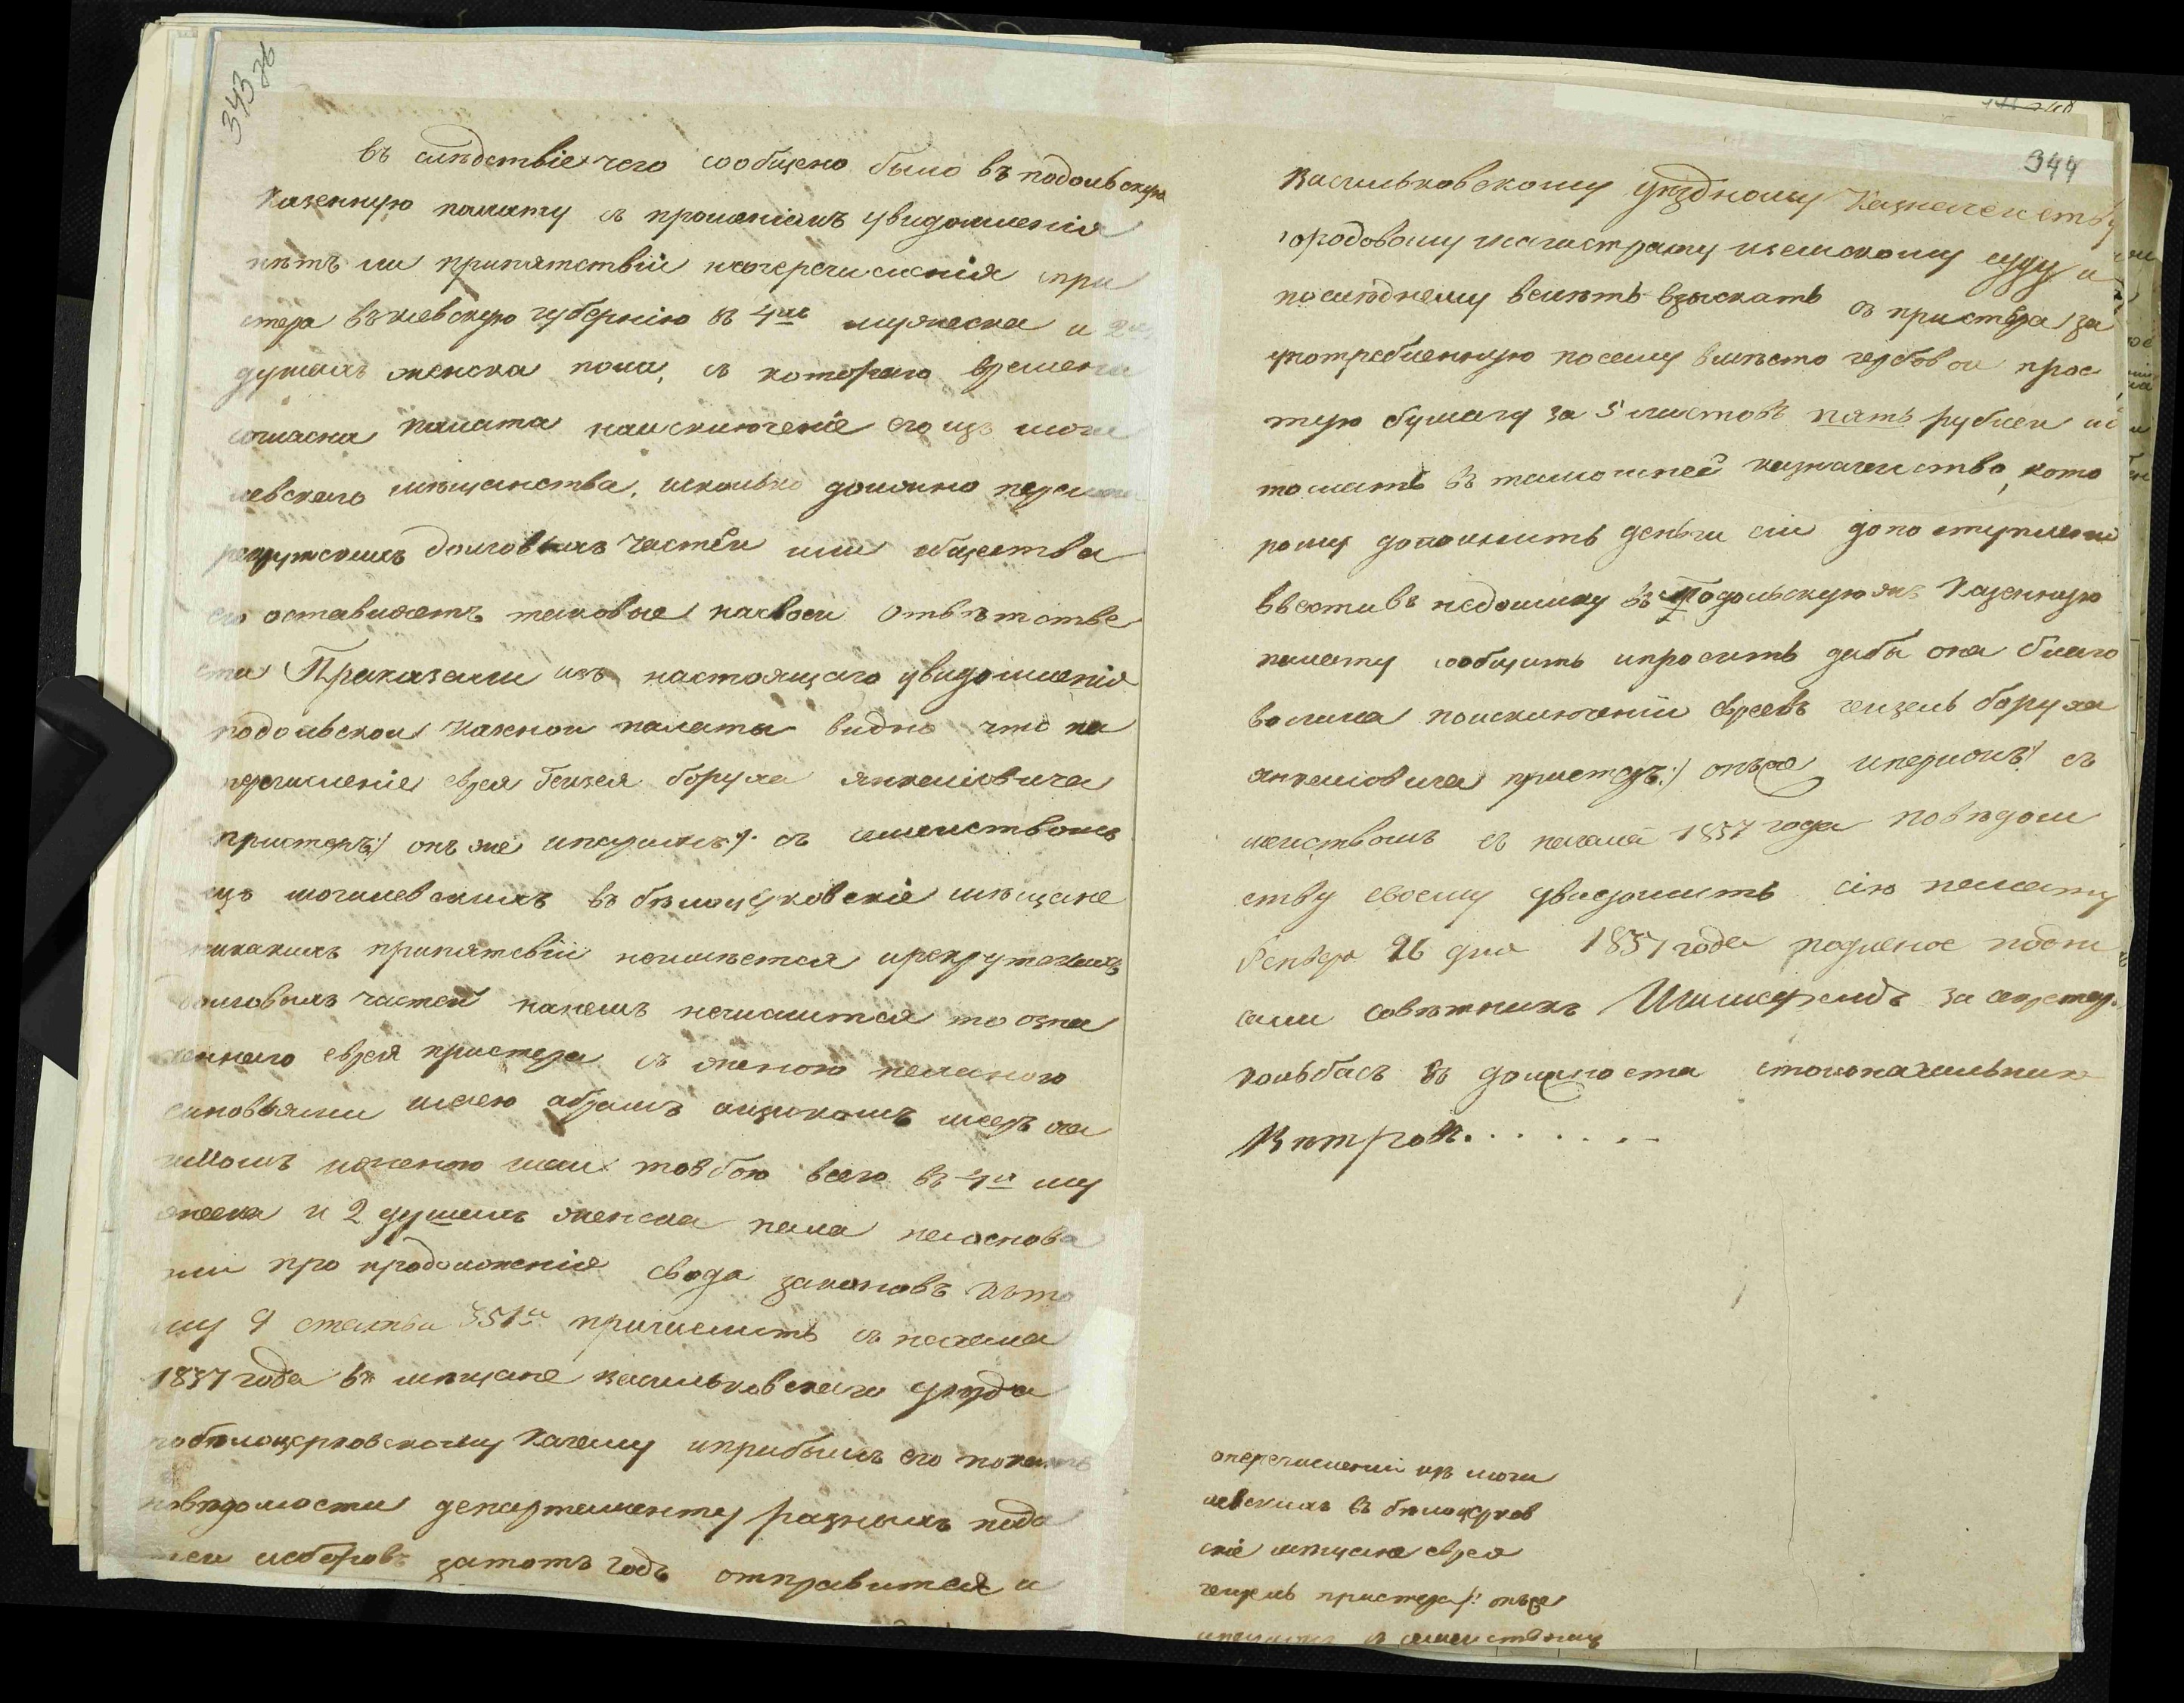 343 зв
въ следствіе чего сообщено было въ подольскую
Казенную палату съ прошеніемъ увидомленія
нѣтъ ли припятствіи наперечисленія при
стера въ кіевскую губернію въ 4хъ мужеска и 2хъ
душахъ женска пола, съ котораго времени
согласна палата наисключеніе его изъ моги
левскаго мѣщанства, исколько должно
рекрутскихъ долговыхъ частей или общества
его оставляетъ таковые насвоей отвѣтстве
сти Приказали изъ настоящаго увидомленія
подольской казной палаты видно что на
перечисленіе еврея бенцея боруха янкеліовича
пристеръ:/ онъ же :/. съ семействомъ
изъ могилевскихъ въ бѣлоцерковскіе мѣщане
никакихъ припятсвіи неимѣется ирекрутскихъ
долговыхъ частей нанемъ нечислится то озна
ченнаго еврея пристера съ женою
сыновьями абрамъ ицикомъ
иженою товбою всего въ 4хъ му
жеска и 2 душахъ женска пола наоснова
нии про продолженія свода законовъ къто
му 9 статьи 351й причислить съ начала
1837 года въ мѣщане васильковскаго уѣзда
побѣлоцерковскому Кагалу иприбыль его показать
повѣдомости департаменту разныхъ пода
теи исборовъ затотъ годъ отправится и
344
Васильковскому уѣздному Казначейству
городовому магистрату иземскому суду и
послѣднему велѣть взыскать съ пристера за
употребленную посему вмѣсто гербовои прос
тую бумагу за 5 листовъ пять рублей и
тослать въ тамошнеѣ казначейство, кото
рому дополнить деньги сіи допоступленія
ввести въ недоимку въ Подольскую жъ Казенную
палату сообщить ипросить дабы она благо
волила поисключеніи евреевъ бенцель боруха
янкеліовича пристеръ:/ онъже :/ съ
мействомъ съ начала 1837 года повѣдом
ству своему увидомить сію палату
Генваря 26 дня 1837 года подленное подпи
сали Совѣтникъ за секретар.
колбасъ въ должности столоначальника
Вѣтровъ.......
оперечисленіи изъ моги
левскихъ въ бѣлоцерков
скіе мѣщане еврея
бенцель пристера /: онъже
съ семействомъ